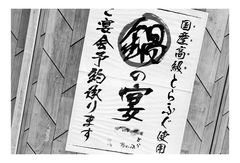 国産高級とらふぐ使用
鍋の宴
ご宴会予約承ります